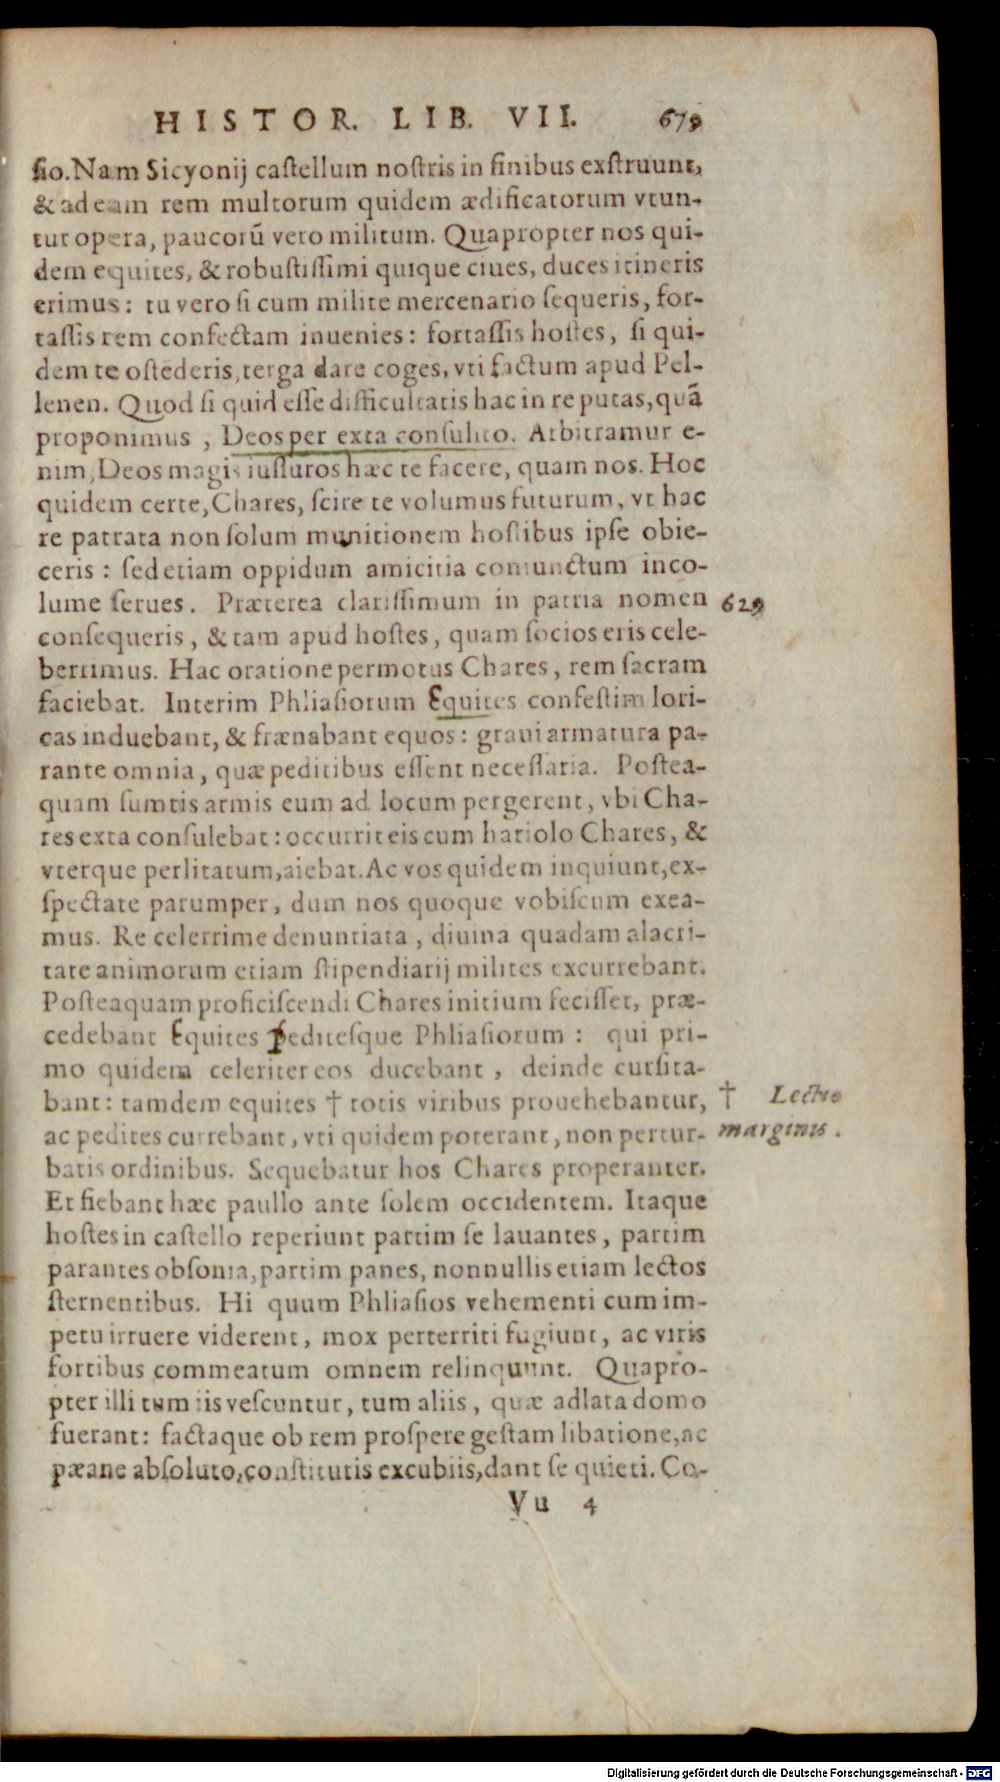 HISTOR. LIB. VII. 679
sio. Nam Sicyonij castellum nostris in finibus exstruunt,
& ad eam rem multorum quidem ædificatorum vtun-
tur opera, paucorũ vero militum. Quapropter nos qui-
dem equites, & robustissimi quique ciues, duces itineris
erimus: tu vero si cum milite mercenario sequeris, for-
tassis rem confectam inuenies: fortassis hostes, si qui-
dem te ostederis, terga dare coges, vti factum apud Pel-
lenen. Quod si quid esse difficultatis hac in re putas, quã
proponimus, Deos per exta consulito. Arbitramur e-
nim, Deos magis iussuros hæc te facere, quam nos. Hoc
quidem certe, Chares, scire te volumus futurum, vt hac
re patrata non solum munitionem hostibus ipse obie-
ceris: sed etiam oppidum amicitia coniunctum inco-
lume serues. Præterea clarissimum in patria nomen 629
consequeris, & tam apud hostes, quam socios eris cele-
berrimus. Hac oratione permotus Chares, rem sacram
faciebat. Interim Phliasiorum Equites confestim lori-
cas induebant, & frænabant equos: graui armatura pa-
rante omnia, quæ peditibus essent necessaria. Postea-
quam sumtis armis eum ad locum pergerent, vbi Cha-
res exta consulebat: occurrit eis cum hariolo Chares, &
vterque perlitatum, aiebat. Ac vos quidem inquiunt, ex-
spectate parumper, dum nos quoque vobiscum exea-
mus. Re celerrime denuntiata, diuina quadam alacri-
tate animorum etiam stipendiarij milites excurrebant.
Posteaquam proficiscendi Chares initium fecisset, præ-
cedebant Equites peditesque Phliasiorum: qui pri-
mo quidem celeriter eos ducebant, deinde cursita-
bant: tamdem equites † totis viribus prouehebantur, † Lectio
ac pedites currebant, vti quidem poterant, non pertur- marginis.
batis ordinibus. Sequebatur hos Chares properanter.
Et fiebant hæc paullo ante solem occidentem. Itaque
hostes in castello reperiunt partim se lauantes, partim
parantes obsonia, partim panes, nonnullis etiam lectos
sternentibus. Hi quum Phliasios vehementi cum im-
petu irruere viderent, mox perterriti fugiunt, ac viris
fortibus commeatum omnem relinquunt. Quapro-
pter illi tum iis vescuntur, tum aliis, quæ adlata domo
fuerant: factaque ob rem prospere gestam libatione, ac
pæane absoluto, constitutis excubiis, dant se quieti. Co-
Vu 4
Digitalisierung gefördert durch die Deutsche Forschungsgemeinschaft - DFG